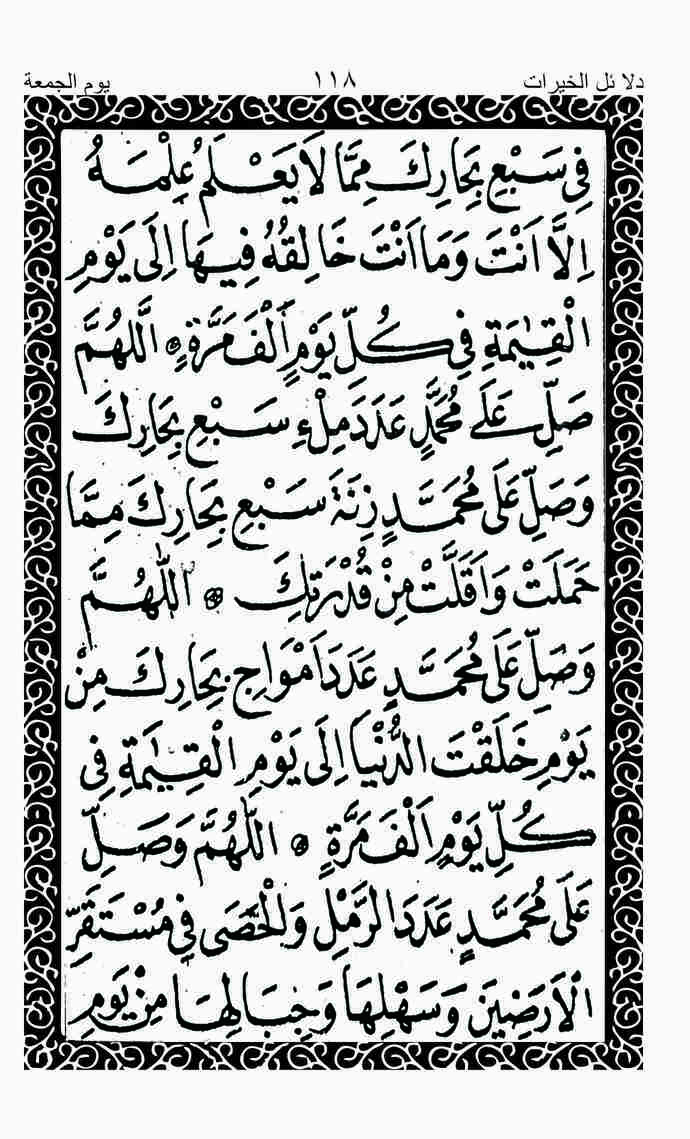 دلائل الخيرات ١١٨ يوم الجمعة
فِي سَبْعِ بِحَارِكَ مِمَّا لَا يَعْلَمُ عِلْمَهُ
اِلَّا اَنْتَ وَمَا اَنْتَ خَالِقُهُ فِيهَا اِلَى يَوْمِ
الْقِيٰمَةِ فِي كُلِّ يَوْمٍ اَلْفَ مَرَّةٍ ۞ اَللّٰهُمَّ
صَلِّ عَلَى مُحَمَّدٍ عَدَدَ مِلْءِ سَبْعِ بِحَارِكَ
وَصَلِّ عَلَى مُحَمَّدٍ زِنَةَ سَبْعِ بِحَارِكَ مِمَّا
حَمَلَتْ وَاَقَلَّتْ مِنْ قُدْرَتِكَ ۞ اَللّٰهُمَّ
وَصَلِّ عَلَى مُحَمَّدٍ عَدَدَ اَمْوَاجِ بِحَارِكَ مِنْ
يَوْمِ خَلَقْتَ الدُّنْيَا اِلَى يَوْمِ الْقِيٰمَةِ فِي
كُلِّ يَوْمٍ اَلْفَ مَرَّةٍ ۞ اَللّٰهُمَّ وَصَلِّ
عَلَى مُحَمَّدٍ عَدَدَ الرَّمْلِ وَالْحَصَى فِي مُسْتَقَرِّ
الْاَرَضِينَ وَسَهْلِهَا وَجِبَالِهَا مِنْ يَوْمِ